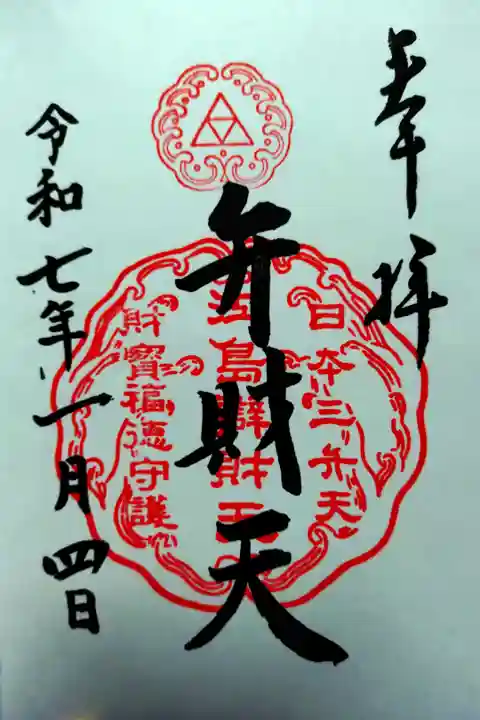 奉拝
日本三弁天
江島辯財天
弁財天
財寳福徳守護
令和七年一月四日